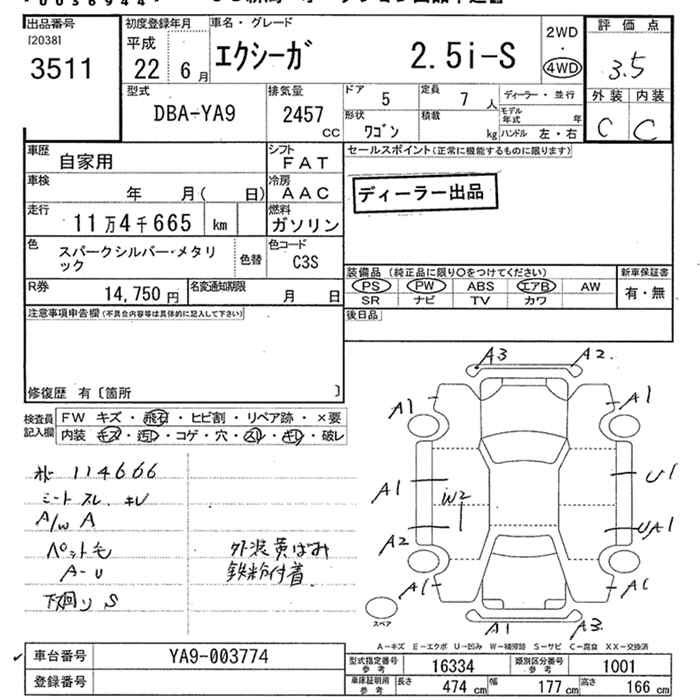 出品番号
I20381
3511
初度登録年月
平成
22 6 月
車名・グレード
エクシーガ 2.5i-S
2WD
・
4WD
評価点
3.5
外装 内装
C C
型式
DBA-YA9
排気量
2457
CC
ドア
5
定員
7 人
ディーラー・並行
形状
ワゴン
積載
kg
モデル年式
年
ハンドル 左・右
車歴
自家用
シフト
FAT
セールスポイント(正常に機能するものに限ります)
ディーラー出品
車検
年 月( 日)
冷房
AAC
走行
11万4千665 km
燃料
ガソリン
色
スパークシルバー・メタリ
ック
色替
色コード
C3S
R券
14,750 円
名変通知期限
月 日
装備品(純正品に限り○をつけてください)
PS PW ABS エアB AW
SR ナビ TV カワ
新車保証書
有・無
注意事項申告欄(不具合内容等は具体的に記入して下さい)
後日品
修復歴 有〔箇所 〕
検査員
記入欄
FW キズ・飛石・ヒビ割・リペア跡・×要
内装 キズ・汚レ・コゲ・穴・スレ・キレ・破レ
114666
シート スレ キレ
A/W A
ペット毛
A-U
下廻り S
外装黄ばみ
鉄粉付着
A3 A2
A1 A1
A1 W2 U1
A2 UA1
A1 A1
A1 A3
スペア
A-キズ E-エクボ U-凹み W-補修跡 S-サビ C-腐食 XX-交換済
車台番号
YA9-003774
登録番号
型式指定番号
参考
16334
類別区分番号
参考
1001
車庫証明用
参考
長さ 474 cm
幅 177 cm
高さ 166 cm